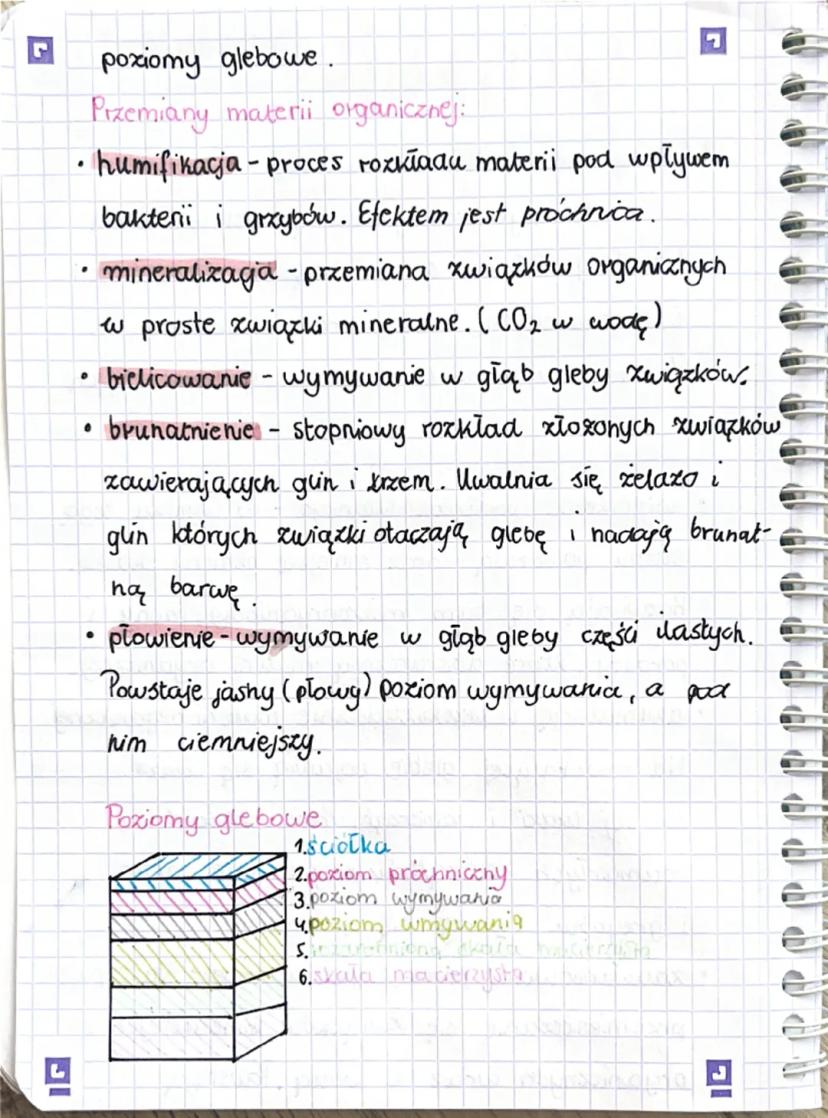 poziomy glebowe.
Przemiany materii organicznej:
• humifikacja - proces rozkładu materii pod wpływem
bakterii i grzybów. Efektem jest próchnica.
• mineralizacja - przemiana związków organicznych
w proste związki mineralne. (CO₂ w wodę)
• bielicowanie - wymywanie w głąb gleby związków.
• brunatnienie - stopniowy rozkład złożonych związków
zawierających glin i krzem. Uwalnia się żelazo i
glin których związki otaczają glebę i nadają brunat-
ną barwę.
• płowienie - wymywanie w głąb gleby części ilastych.
Powstaje jasny (płowy) poziom wymywania, a pod
nim ciemniejszy.
Poziomy glebowe
1. ściółka
2. poziom próchniczny
3. poziom wymywania
4. poziom wmywania
5. skała macierzysta
6. skała macierzysta